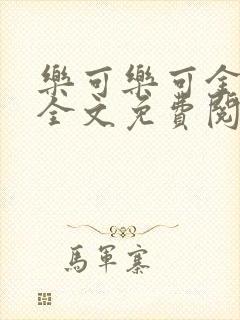 樂可樂可全
全文免費閱
馬軍寨